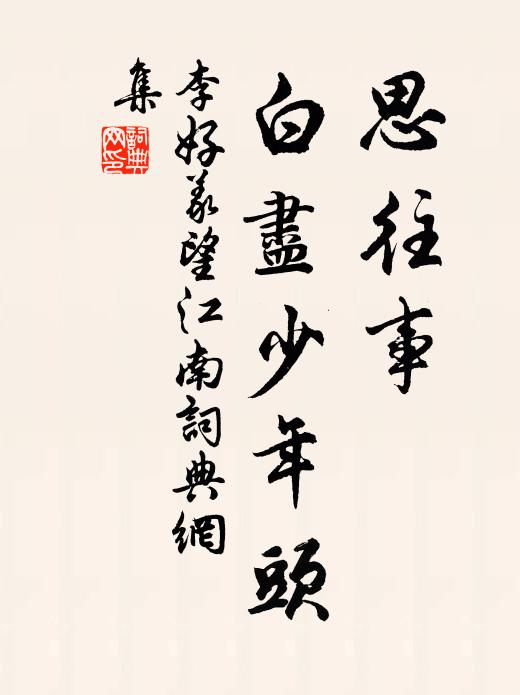 思往事
白盡少年頭
李好義望江南詞典網
集
詞典网印